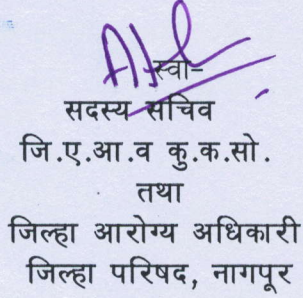 स्वा-
सदस्य सचिव
जि.ए.आ.व कु.क.सो.
तथा
जिल्हा आरोग्य अधिकारी
जिल्हा परिषद, नागपूर